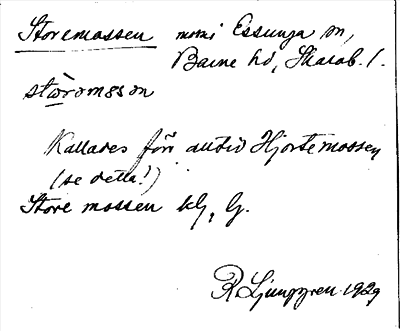 Storemossen mom i Essunga sn,
Barne hd, Skarab. l.
storomsson
Kallades förr alltid Hjortemossen
(se detta!)
Store mossen kg, G.
R Ljunggren 1929